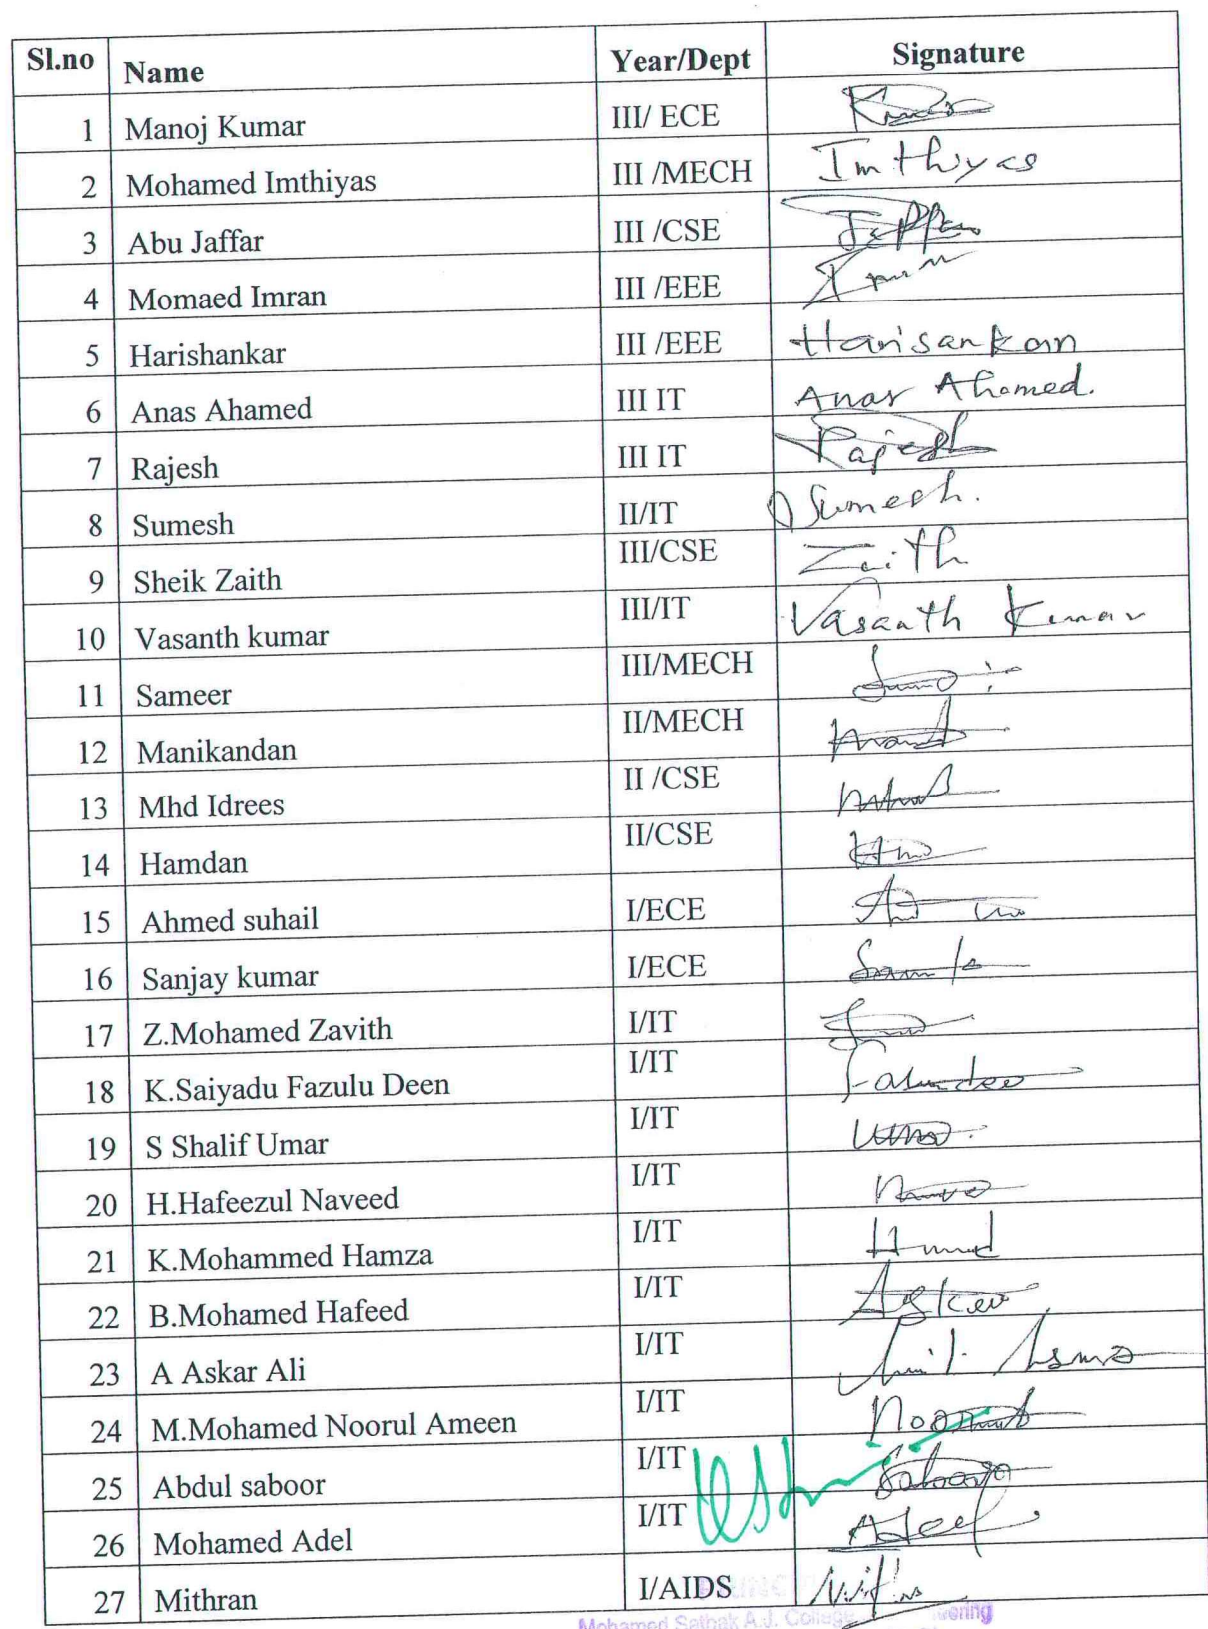 Sl.no Name Year/Dept Signature
1 Manoj Kumar III/ ECE
2 Mohamed Imthiyas III /MECH Imthiyas
3 Abu Jaffar III /CSE
4 Momaed Imran III /EEE
5 Harishankar III /EEE Harisankar
6 Anas Ahamed III IT Anas Ahamed.
7 Rajesh III IT Rajesh
8 Sumesh II/IT Sumesh.
9 Sheik Zaith III/CSE Zaith
10 Vasanth kumar III/IT Vasanth Kumar
11 Sameer III/MECH
12 Manikandan II/MECH
13 Mhd Idrees II /CSE
14 Hamdan II/CSE
15 Ahmed suhail I/ECE
16 Sanjay kumar I/ECE
17 Z.Mohamed Zavith I/IT
18 K.Saiyadu Fazulu Deen I/IT
19 S Shalif Umar I/IT
20 H.Hafeezul Naveed I/IT
21 K.Mohammed Hamza I/IT
22 B.Mohamed Hafeed I/IT
23 A Askar Ali I/IT
24 M.Mohamed Noorul Ameen I/IT
25 Abdul saboor I/IT
26 Mohamed Adel I/IT
27 Mithran I/AIDS
Mohamed Sathak A.J. College